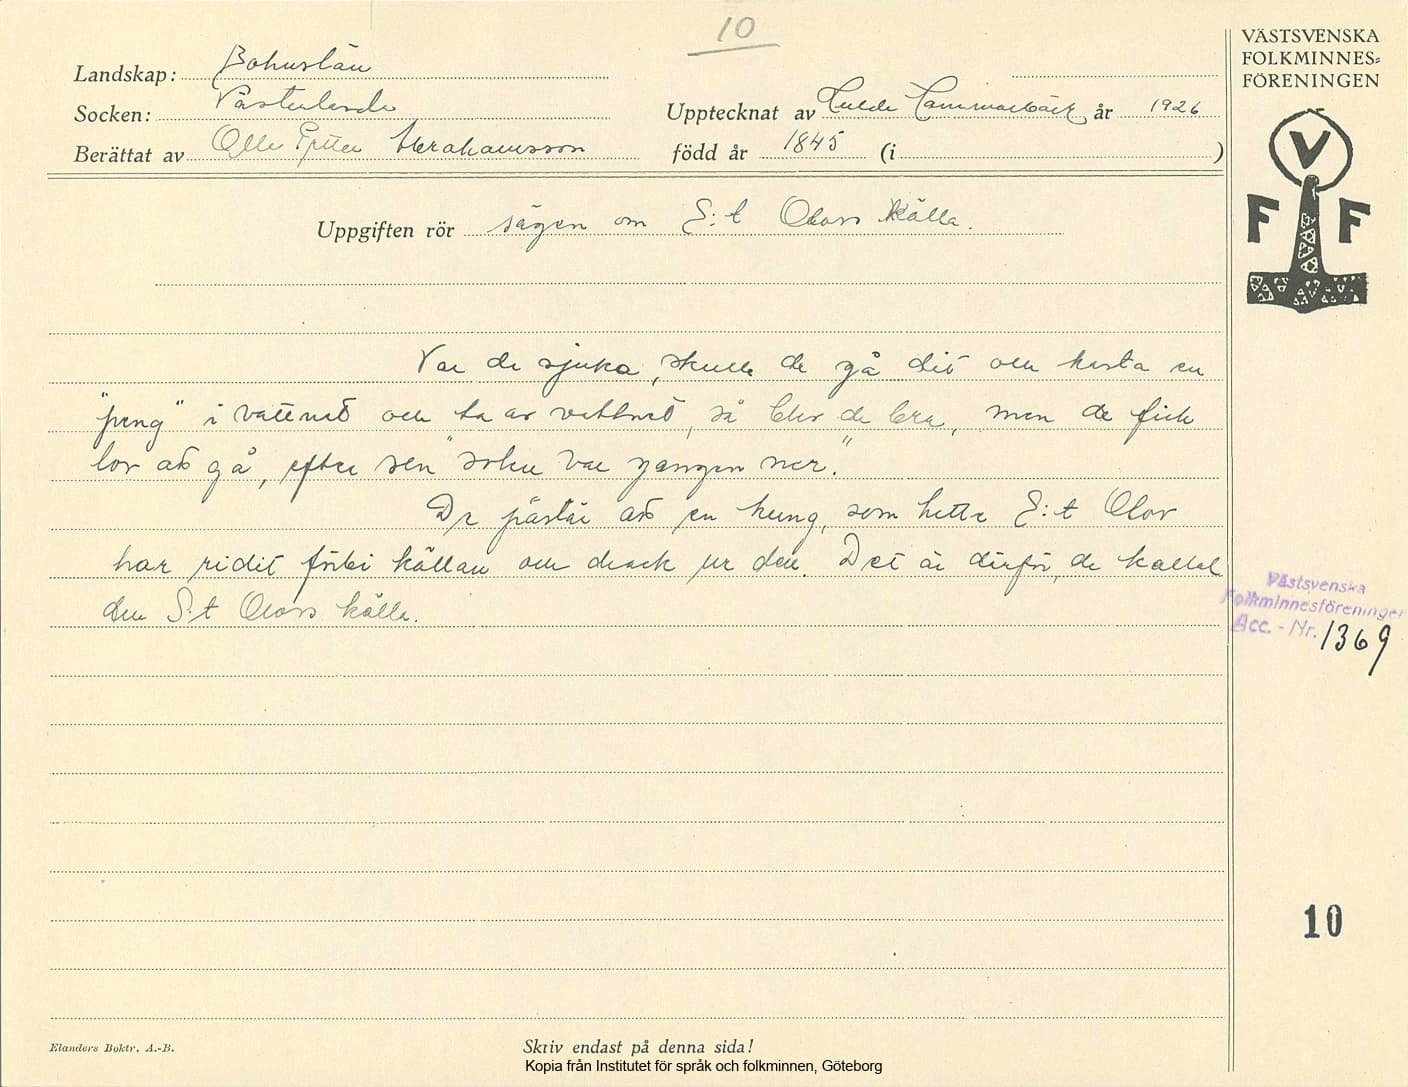 10
VÄSTSVENSKA
FOLKMINNES=
FÖRENINGEN
V
F F
Landskap: Bohuslän
Socken: Västerlanda
Upptecknat av Hulda Hammarbäck år 1926
Berättat av Olle Petter Abrahamsson
född år 1845 (i )
Uppgiften rör sägen om S:t Olovs Källa.
Var de sjuka, skulle de gå dit och kasta en
"peng" i vattnet och ta av vattnet, så blev de bra, men de fick
lov att gå, efter sen "solen var gangen ner."
De påstår att en kung, som hette S:t Olov
har ridit förbi källan och drack ur den. Det är därför, de kallat
den S:t Olovs källa.
Västsvenska
Folkminnesföreningen
Acc. - Nr. 1369
10
Elanders Boktr. A.-B.
Skriv endast på denna sida!
Kopia från Institutet för språk och folkminnen, Göteborg